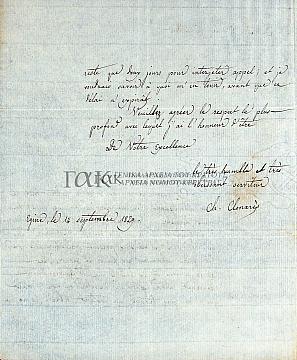 reste que deux jours pour interjeter appel; et je
voudrais savoir à quoi m'en tenir, avant que ce
délai n'expirât.
Veuillez agréer le respect le plus
profond avec lequel j'ai l'honneur d'être
De Votre Excellence
Le très humble et très
obéissant serviteur
Ch. Clonarès
Egine, le 12 septembre 1829.
ΓΑΚ
ΓΕΝΙΚΑ ΑΡΧΕΙΑ ΤΟΥ ΚΡΑΤΟΥΣ